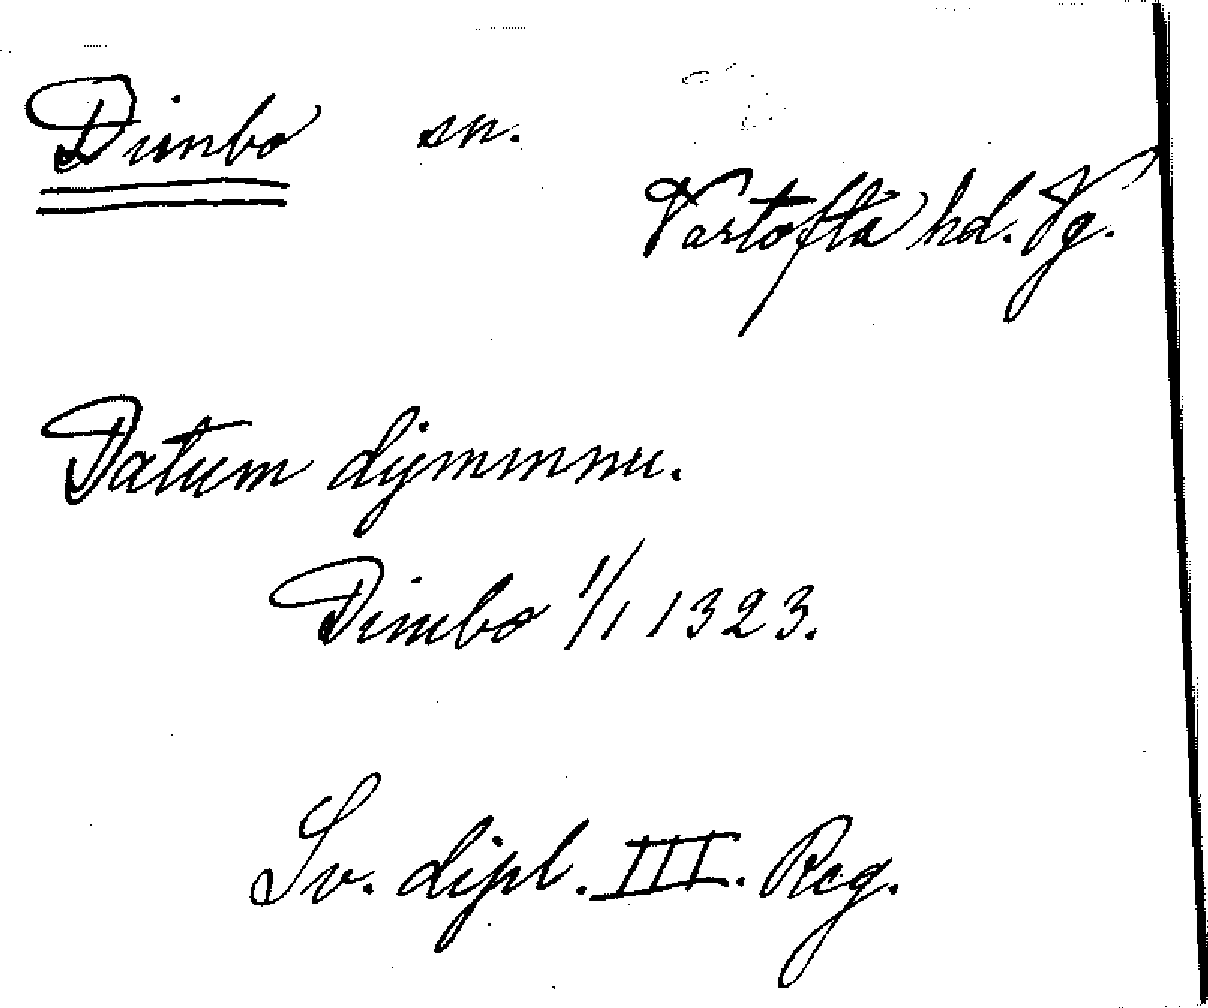 Dimbo sn.
Vartofta hd. Vg.
Datum dijmmnu.
Dimbo 1/1 1323.
Sv. dipl. III. Reg.